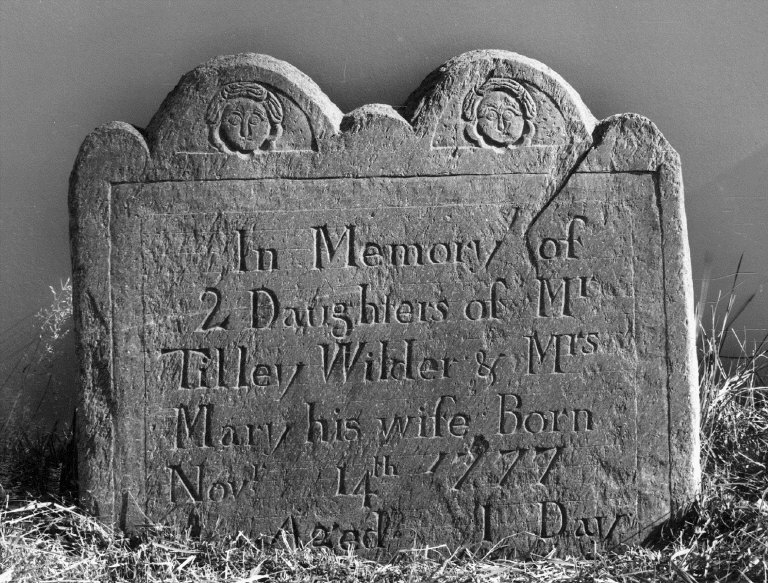 In Memory of
2 Daughters of Mr
Tilley Wilder & Mrs
Mary his wife Born
Novr 14th 1777
Aged 1 Day